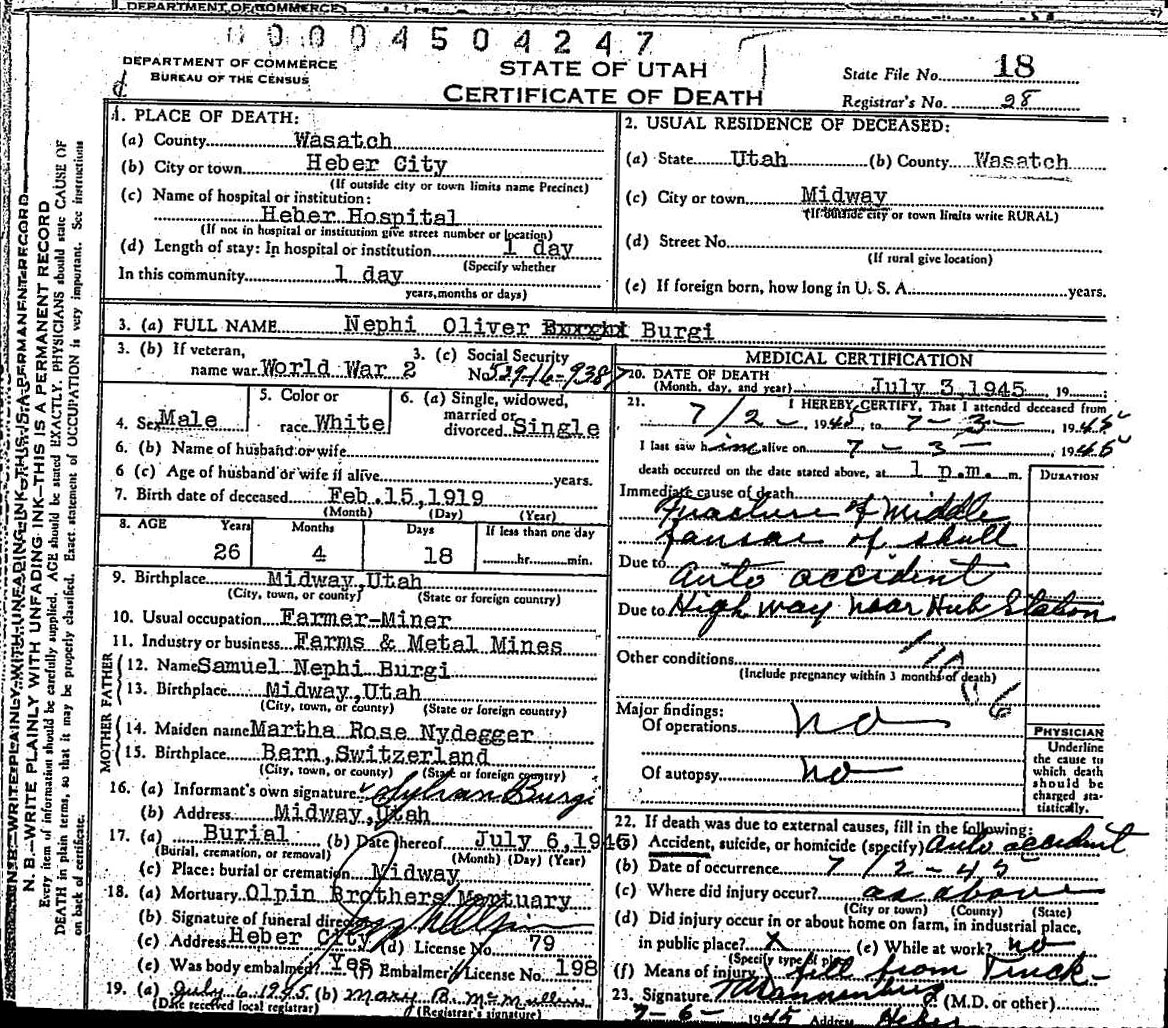 DEPARTMENT OF COMMERCE
00004504247
DEPARTMENT OF COMMERCE
BUREAU OF THE CENSUS
STATE OF UTAH
CERTIFICATE OF DEATH
State File No. 18
Registrar's No. 28
N. B.—WRITE PLAINLY WITH UNFADING INK—THIS IS A PERMANENT RECORD
Every item of information should be carefully supplied. AGE should be stated EXACTLY. PHYSICIANS should state CAUSE OF
DEATH in plain terms, so that it may be properly classified. Exact statement of OCCUPATION is very important. See instructions
on back of certificate.
1. PLACE OF DEATH:
(a) County Wasatch
(b) City or town Heber City
(If outside city or town limits name Precinct)
(c) Name of hospital or institution:
Heber Hospital
(If not in hospital or institution give street number or location)
(d) Length of stay: In hospital or institution 1 day
(Specify whether
In this community 1 day
years, months or days)
2. USUAL RESIDENCE OF DECEASED:
(a) State Utah (b) County Wasatch
(c) City or town Midway
(If outside city or town limits write RURAL)
(d) Street No.
(If rural give location)
(e) If foreign born, how long in U. S. A. years.
3. (a) FULL NAME Nephi Oliver Burgi
3. (b) If veteran, name war World War 2
3. (c) Social Security No. 529-16-9387
4. Sex Male
5. Color or race White
6. (a) Single, widowed, married or divorced Single
6. (b) Name of husband or wife
6 (c) Age of husband or wife if alive years.
7. Birth date of deceased Feb. 15, 1919
(Month) (Day) (Year)
8. AGE Years Months Days If less than one day
26 4 18 hr. min.
9. Birthplace Midway, Utah
(City, town, or county) (State or foreign country)
10. Usual occupation Farmer-Miner
11. Industry or business Farms & Metal Mines
FATHER
12. Name Samuel Nephi Burgi
13. Birthplace Midway, Utah
(City, town, or county) (State or foreign country)
MOTHER
14. Maiden name Martha Rose Nydegger
15. Birthplace Bern, Switzerland
(City, town, or county) (State or foreign country)
16. (a) Informant's own signature Sylvan Burgi
(b) Address Midway, Utah
17. (a) Burial (b) Date thereof July 6, 1945
(Burial, cremation, or removal) (Month) (Day) (Year)
(c) Place: burial or cremation Midway
18. (a) Mortuary Olpin Brothers Mortuary
(b) Signature of funeral director
(c) Address Heber City (d) License No. 79
(e) Was body embalmed? Yes (f) Embalmer's License No. 198
19. (a) July 6 1945 (b) Mary B. McMullin
(Date received local registrar) (Registrar's signature)
MEDICAL CERTIFICATION
20. DATE OF DEATH
(Month, day, and year) July 3, 1945 19
21. I HEREBY CERTIFY, That I attended deceased from
7/2 - 1945, to 7-3- 1945
I last saw him alive on 7-3- 1945
death occurred on the date stated above, at 1 p.m. m.
DURATION
Immediate cause of death
Fracture of Middle
fansae of skull
Due to Auto accident
Due to High way near Hub Station
Other conditions
(Include pregnancy within 3 months of death)
Major findings:
Of operations no
Of autopsy no
PHYSICIAN
Underline
the cause to
which death
should be
charged sta-
tistically.
22. If death was due to external causes, fill in the following:
(a) Accident, suicide, or homicide (specify) Auto accident
(b) Date of occurrence 7/2-45
(c) Where did injury occur? as above
(City or town) (County) (State)
(d) Did injury occur in or about home on farm, in industrial place,
in public place? X (e) While at work? no
(Specify type of place)
(f) Means of injury fell from Truck-
23. Signature (M.D. or other)
7-6- 1945 Address Heber